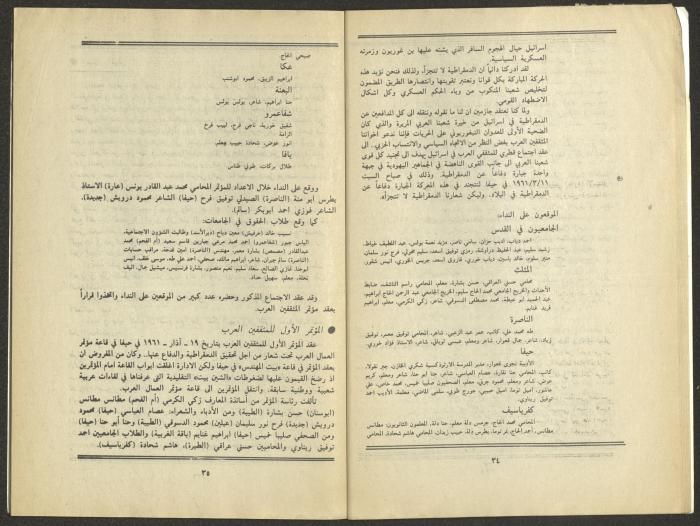 اسرائيل حيال الهجوم السافر الذي يشنه عليها بن غوريون وزمرته
العسكرية السياسية.
لقد أدركنا دائماً أن الديمقراطية لا تتجزأ، ولذلك فنحن نؤيد هذه
الحركة المباركة بكل قوانا ونعتبر تقويتها وانتصارها الطريق المضمون
لتخليص شعبنا المنكوب من وباء الحكم العسكري وكل أشكال
الاضطهاد القومي.
ولما كنا نعتقد جازمين أن لنا ما نقوله وننقله الى كل المدافعين عن
الديمقراطية في اسرائيل من خبرة شعبنا العربي المريرة والذي كان
الضحية الأولى للعدوان البنغوريوني على الحريات فإننا ندعو اخواننا
المثقفين العرب بغض النظر عن الاتجاه السياسي والانتساب الحزبي.. الى
عقد اجتماع قطري لمثقفي العرب في اسرائيل يهدف الى تجنيد كل قوى
شعبنا العربي الى جانب القوى الناهضة في الجماهير اليهودية في جبهة
واحدة جبارة دفاعاً عن الديمقراطية. وذلك في صباح السبت
١٩٦١/٣/١١ في حيفا لنتجند في هذه المعركة الجبارة دفاعاً عن
الديمقراطية في البلاد. وليكن شعارنا الديمقراطية لا تتجزأ.
الموقعون على النداء:
الجامعيون في القدس
احمد دياب، اديب جزان، سامي ناصر، مزيد نعمة بولس، عبد اللطيف خياط،
رشيد سليم، عبد الحفيظ دراوشة، رمزي توفيق اسعد، سليم مخولي، فرح نور سلمان
منير سلوم، خالد ياسين، دياب خوري، فاروق اسعد، جريس الخوري، انيس شقور.
المثلث
محامي حسني العراقي، حسن بشارة، معلم، المحامي راسم الناشف، ضابط
الأحداث والخريج الجامعي محمد الحاج سليم، الخريج الجامعي عبد الرحمن الحاج ابراهيم،
عبد الحميد ابو عيطة، محمد مصطفى الدسوقي، شاعر، زكي الكرمي، معلم، ابراهيم
فريد غنايم.
الناصرة
طه محمد علي، كاتب، عمر عبد الزعبي، شاعر، المحامي توفيق معمر، توفيق
زياد، شاعر، جمال قعوار، شاعر ومعلم، عيسى لوباني، شاعر، الاستاذ فؤاد خوري.
حيفا
الأديبة نجوى قعوار، مدير المدرسة الارثوذكسية شكري الخازن، جبر نقولا،
كاتب، المحامي حنا نقارة، عصام العباسي، شاعر، حنا ابو حنا، شاعر ومعلم، كريم
عوض، شاعر ومعلم، محمود جري، معلم، الصحفيون صليبا خميس، محمد خاص، علي
عاشور، اميل توما، اميل حبيبي، جورج طوبي، سلمى الماضي، معلمة، الأديب احمد
توفيق ريناوي.
كفرياسيف
المحامي محمد الحاج، جرمس دلة معلم، حنا دلة، المعلمون الثانويون: مطانس
مطانس، أحمد الحاج، نمر توما، بطرس دلة، حبيب زيدان، المحامي هاشم شحادة، المحامي
٣٤
صبحي الحاج
عكا
ابراهيم الزيبق، محمود ابوشنب
البعنة
حنا ابراهيم، شاعر، بولس بولس
شفاعمرو
شفيق خورية، ناجي فرح، لبيب فرح
الرامة
انور عوض، شحادة حبيب معلم.
يافا
طلال بركات، طوني طناس
ووقع على النداء خلال الاعداد للمؤتمر المحامي محمد عبد القادر يونس (عارة) الاستاذ
بطرس أبو منة (الناصرة) الصيدلي توفيق فرح (حيفا) الشاعر محمود درويش (جديدة)،
الشاعر فوزي احمد ابوبكر (سالم).
كما وقع طلاب الحقوق في الجامعات:
نسيب خالد (عرفيش) معين دياح (ديرالأسد) وطالبت الشؤون الاجتماعية.
الياس جبور (شفاعمرو) احمد محمد مرعي جبارين قاسم سعيد (أم الفحم) محمد
عبدالقادر (مصمص) بشارة معمر، مهندس (الناصرة) امين قدحة، مراقب حسابات
(الناصرة) سالم جبران، شاعر، ابراهيم مالك، صحفي، احمد علي طه، موسى خلف، انيس
ابوحنا، غازي الصالح، سعاد سليم، نعيم منصور، بشارة فرنسيس، ميشيل جمال، اليف
نخلة، معلم، سهيل حداد
وقد عقد الاجتماع المذكور وحضره عدد كبير من الموقعين على النداء واتخذوا قراراً
بعقد مؤتمر المثقفين العرب.
● المؤتمر الأول للمثقفين العرب
عقد المؤتمر الأول للمثقفين العرب بتاريخ ١٩ ـ آذار ـ ١٩٦١ في حيفا في قاعة مؤتمر
العمال العرب تحت شعار من أجل تحقيق الديمقراطية والدفاع عنها.. وكان من المفروض أن
يعقد المؤتمر في قاعة «بيت المهندس» في حيفا ولكن الادارة أغلقت ابواب القاعة امام المؤتمرين
اذ رضخ القيمون عليها لضغوطات «الشين بيت» التقليدية التي عرفناها في لقاءات عربية
شعبية ووطنية سابقة. وانتقل المؤتمرون الى قاعة مؤتمر العمال العرب.
تألفت رئاسة المؤتمر من أساتذة المعارف زكي الكرمي (أم الفحم) مطانس مطانس
(ابوسنان) حسن بشارة (الطيبة) ومن الأدباء والشعراء: عصام العباسي (حيفا) محمود
درويش (جديدة) فرح نور سليمان (عيلبن) محمود الدسوقي (الطيبة) وحنا أبو حنا (حيفا)
ومن الصحفي صليبا خميس (حيفا) ابراهيم غنايم (باقة الغربية) والطلاب الجامعيين احمد
توفيق ريناوي والمحاميين حسني عراقي (الطيرة)، هاشم شحادة (كفرياسيف).
٣٥